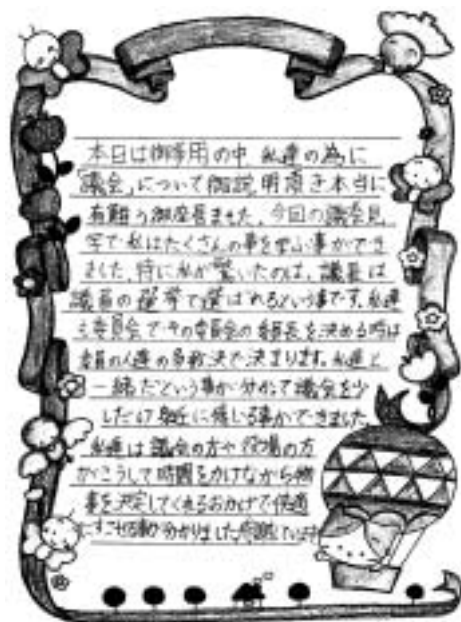 本日は御多用の中 私達の為に
「議会」について御説明頂き本当に
有難う御座居ました。今回の議会見
学で私はたくさんの事を学ぶ事ができ
ました。特に私が驚いたのは、議長は
議員の選挙で選ばれるという事です。私達
も委員会でその委員会の委員長を決める時は
委員の人達の多数決で決まります。私達と
一緒だという事が分かって議会を少
しだけ身近に感じる事ができました
私達は議会の方や役場の方
がこうして時間をかけながら物
事を決定してくれるおかげで快適
にすごせる事が分かりました。感謝しています